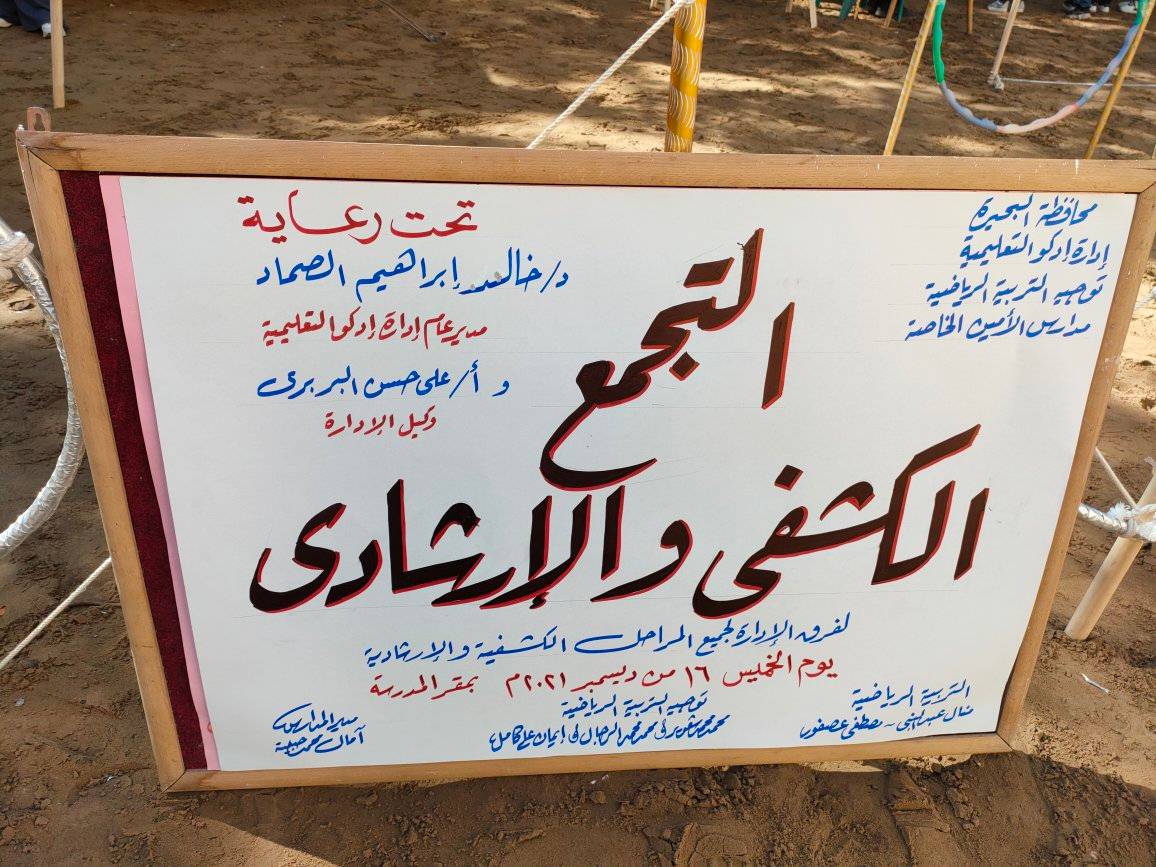 محافظة البحيرة
إدارة إدكو التعليمية
توجيه التربية الرياضية
مدارس الأمين الخاصة
تحت رعاية
د/ خالد إبراهيم الصماد
مدير عام إدارة إدكو التعليمية
و أ/ على حسن البربرى
وكيل الإدارة
التجمع
الكشفى والإرشادى
لفرق الإدارة لجميع المراحل الكشفية والإرشادية
يوم الخميس ١٦ من ديسمبر ٢٠٢١م بمقر المدرسة
التربية الرياضية
منال عبد النبى - مصطفى عصفور
توجيه التربية الرياضية
محمد محمد إيمان على كامل
مدير المدارس
آمال محمد